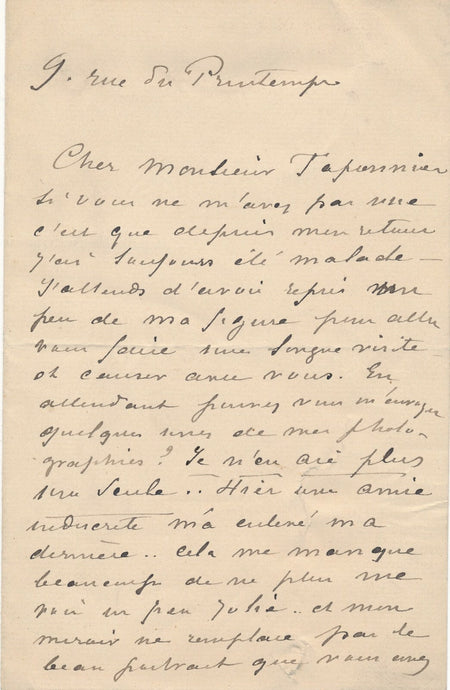 9. rue du Printemps
Cher Monsieur Taponnier
si vous ne m'avez pas vue
c'est que depuis mon retour
j'ai toujours été malade —
J'attends d'avoir repris un
peu de ma figure pour aller
vous faire une longue visite
et causer avec vous. En
attendant pouvez vous m'envoyer
quelques unes de mes photo-
graphies? Je n'en ai plus
une seule.. Hier une amie
indiscrète m'a enlevé ma
dernière.. cela me manque
beaucoup de ne plus me
voir un peu jolie.. et mon
miroir ne remplace pas le
beau portrait que vous avez